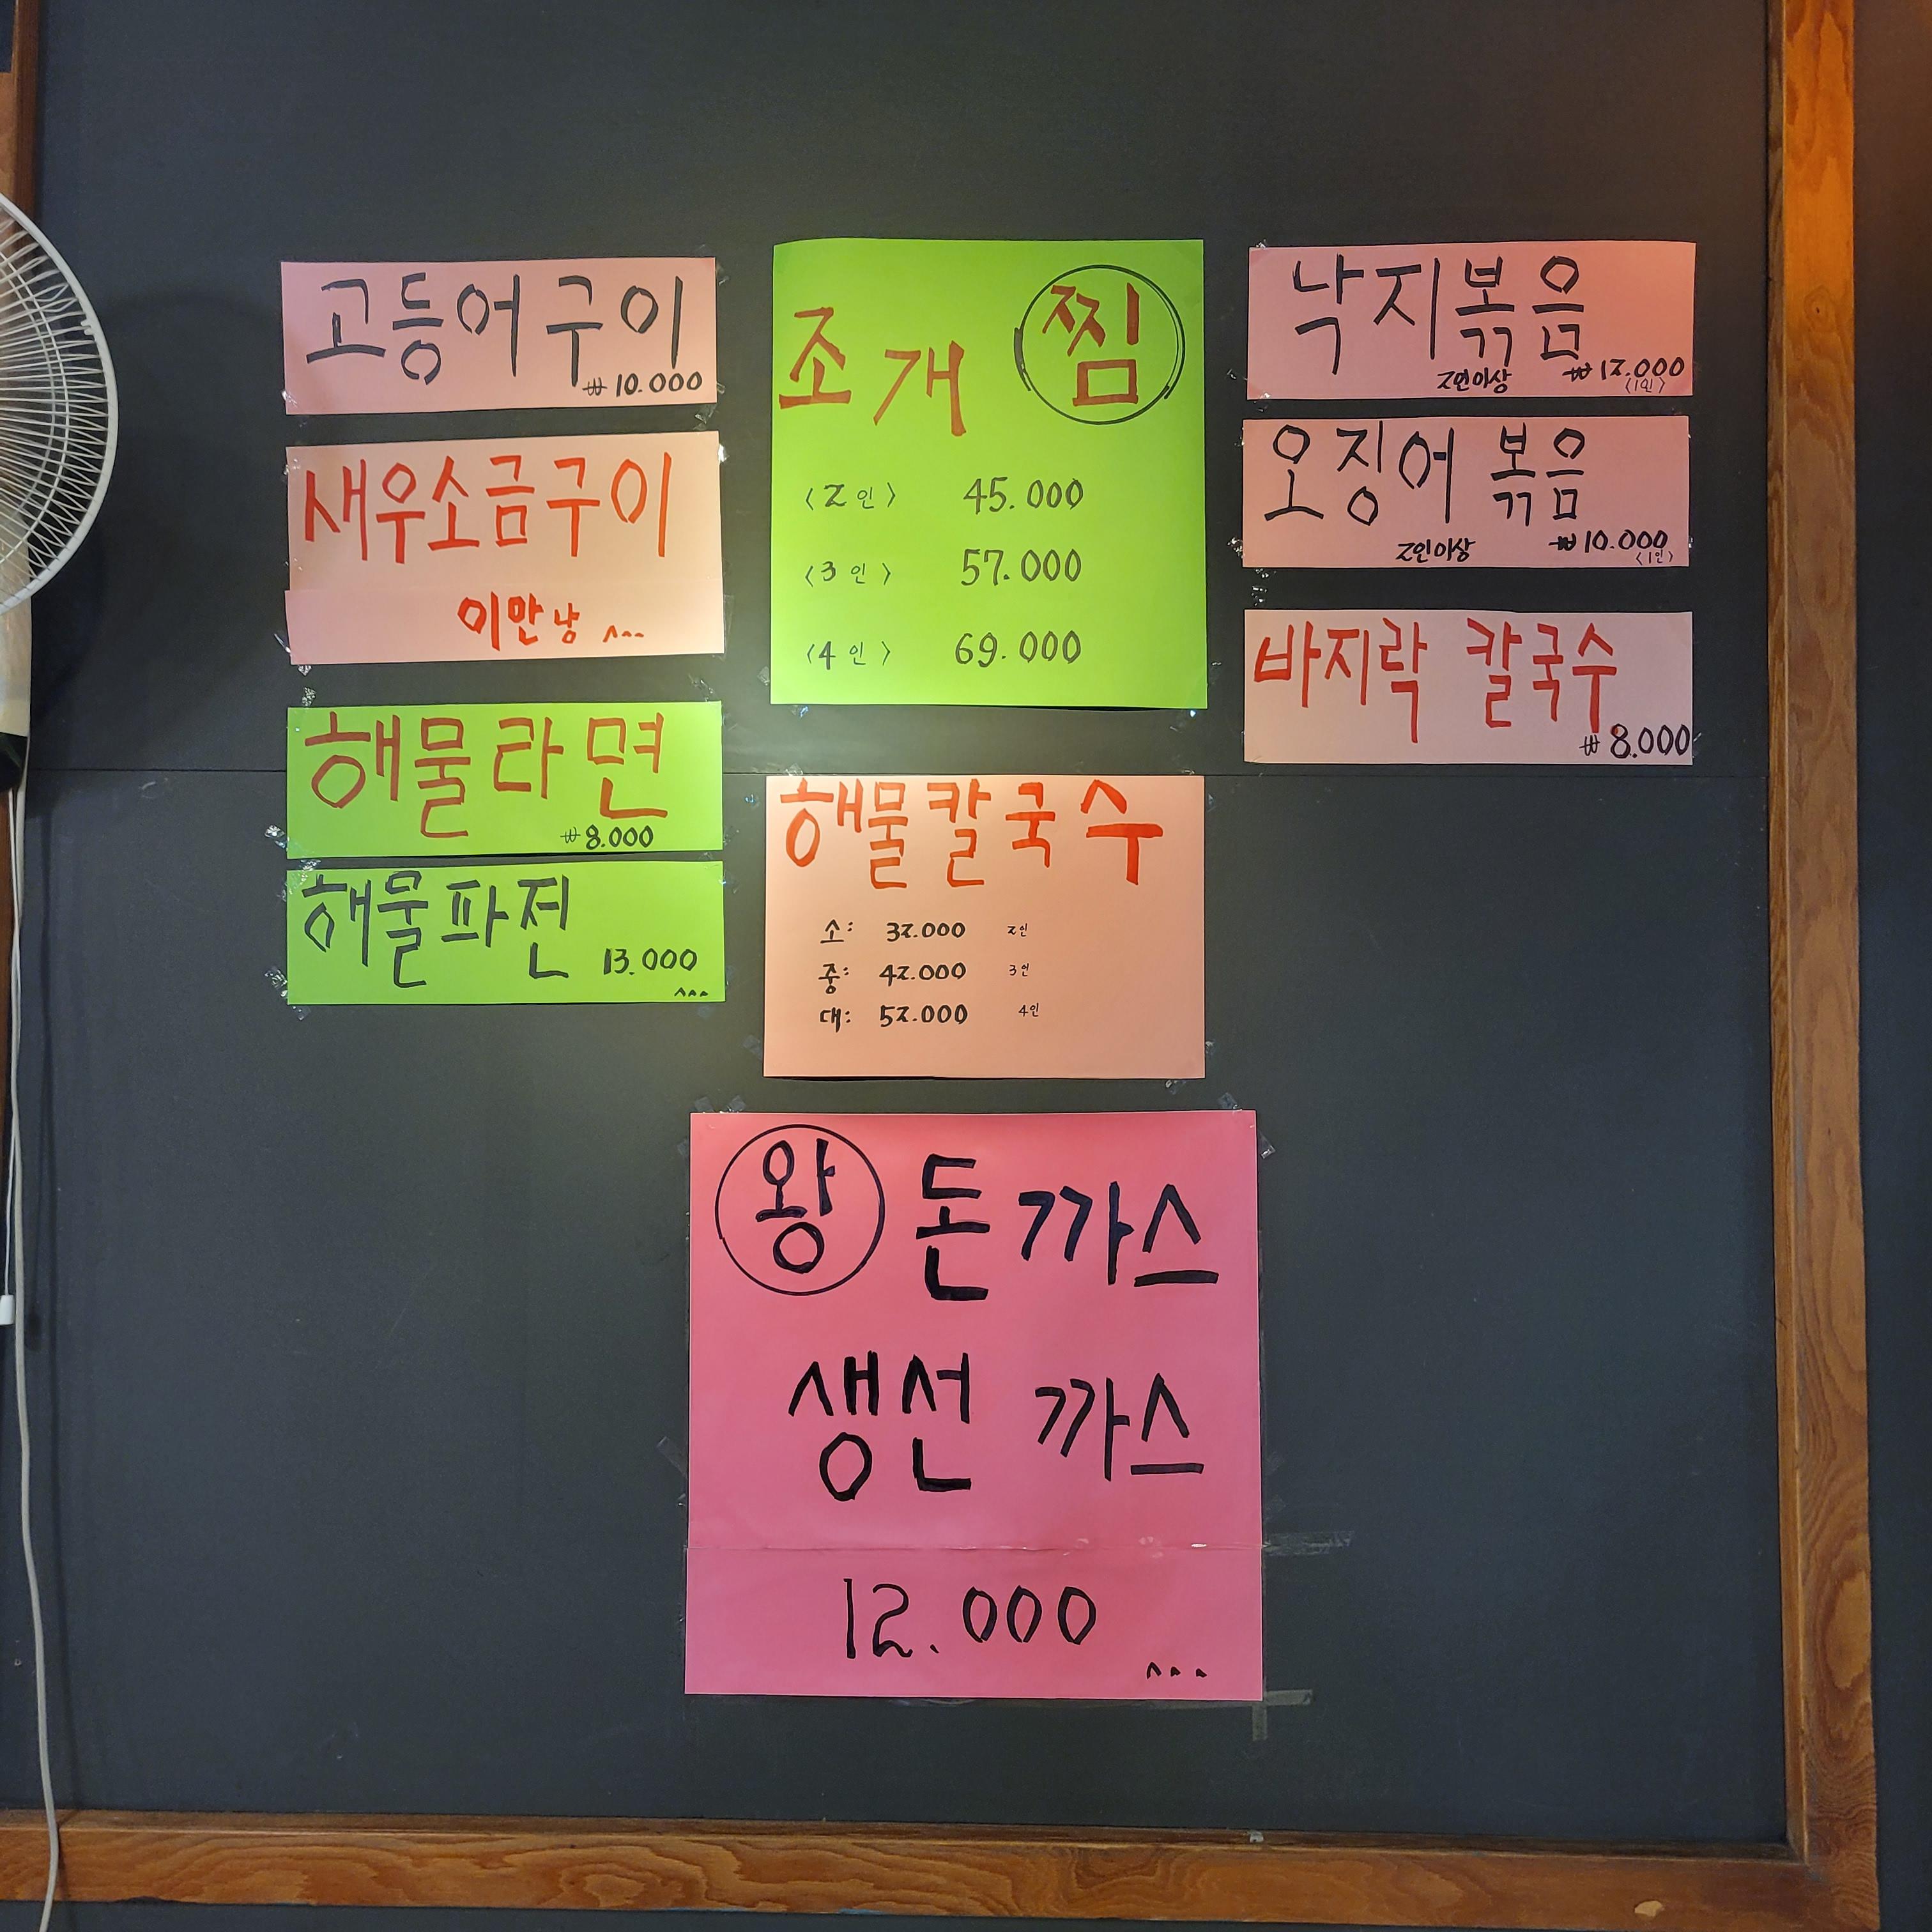 고등어구이
₩10.000
새우소금구이
이만냥
해물라면
₩8.000
해물파전
13.000
조개 찜
〈2인〉 45.000
〈3인〉 57.000
〈4인〉 69.000
해물칼국수
소: 32.000 2인
중: 42.000 3인
대: 52.000 4인
낙지볶음
2인이상 ₩12.000
〈1인〉
오징어 볶음
2인이상 ₩10.000
〈1인〉
바지락 칼국수
₩8.000
왕 돈까스
생선 까스
12.000